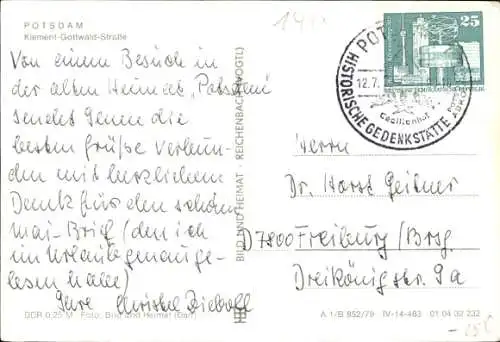 POTSDAM
Klement-Gottwald-Straße
Von einem Besuch in
der alten Heimat, Potsdam
sendet Ihnen die
besten Grüße verbun-
den mit herzlichem
Dank für den schönen
Mai-Brief (den ich
im Urlaub genau ge-
lesen habe)
Ihre Christel Diebold
DDR 0,25 M Foto: Bild und Heimat (Darr)
BILD UND HEIMAT · REICHENBACH (VOGTL)
25
12.7.
HISTORISCHE GEDENKSTÄTTE
Cecilienhof
Herrn
Dr. Horst Geitner
D7800 Freiburg/Brsg.
Dreikönigstr. 9a
A 1/B 852/79 IV-14-483 01 04 09 232